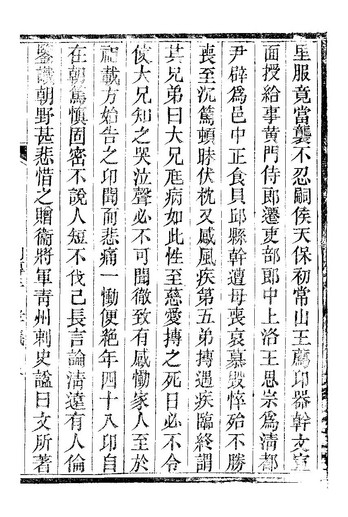 里服竟當襲不忍嗣侯天保初常山王薦卬器幹文宣
面授給事黃門侍郎遷吏部郎中上洛王思宗爲清都
尹辟爲邑中正食貝邱縣幹遭母喪哀慕毀悴殆不勝
喪至沉篤頓昧伏枕又感風疾第五弟搏遇疾臨終謂
其兄弟曰大兄尫病如此性至慈愛搏之死日必不令
使大兄知之哭泣聲必不可聞徹致有感慟家人至於
祖載方始告之卬聞而悲痛一慟便絕年四十八卬自
在朝篤愼固密不說人短不伐己長言論清遠有人倫
鑒識朝野甚悲惜之贈衞將軍靑州刺史諡曰文所著